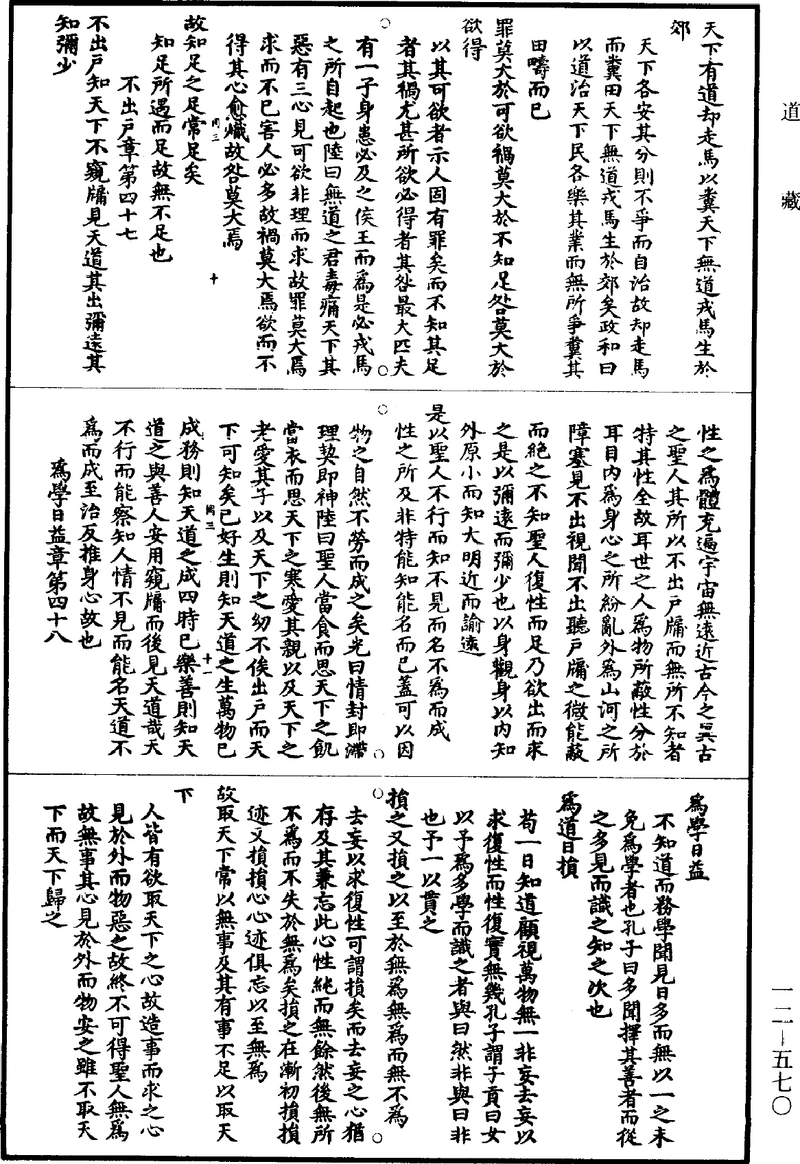 道藏
天下有道却走馬以糞天下無道戎馬生於
郊
天下各安其分則不爭而自治故却走馬
而糞田天下無道戎馬生於郊矣政和曰
以道治天下民各樂其業而無所爭糞其
田疇而已
罪莫大於可欲禍莫大於不知足咎莫大於
欲得
以其可欲者示人固有罪矣而不知其足
者其禍尤甚所欲必得者其咎最大匹夫
有一子身患必及之侯王而爲是必戎馬
之所自起也陸曰無道之君毒痡天下其
惡有三心見可欲非理而求故罪莫大焉
求而不已害人必多故禍莫大焉欲而不
得其心愈熾故咎莫大焉
故知足之足常足矣
知足所遇而足故無不足也
不出戶章第四十七
不出戶知天下不窺牖見天道其出彌遠其
知彌少
性之爲體充遍宇宙無遠近古今之異古
之聖人其所以不出戶牖而無所不知者
特其性全故耳世之人爲物所蔽性分於
耳目内爲身心之所紛亂外爲山河之所
障塞見不出視聞不出聽戶牖之微能蔽
而絶之不知聖人復性而足乃欲出而求
之是以彌遠而彌少也以身觀身以内知
外原小而知大明近而諭遠
是以聖人不行而知不見而名不爲而成
性之所及非特能知能名而已蓋可以因
物之自然不勞而成之矣光曰情封即滯
理契即神陸曰聖人當食而思天下之飢
當衣而思天下之寒愛其親以及天下之
老愛其子以及天下之幼不俟出戶而天
下可知矣已好生則知天道之生萬物已
成務則知天道之成四時已樂善則知天
道之與善人安用窺牖而後見天道哉天
不行而能察知人情不見而能名天道不
爲而成至治反推身心故也
爲學日益章第四十八
爲學日益
不知道而務學聞見日多而無以一之未
免爲學者也孔子曰多聞擇其善者而從
之多見而識之知之次也
爲道日損
苟一日知道顧視萬物無一非妄去妄以
求復性而性復實無幾孔子謂子貢曰女
以予爲多學而識之者與曰然非與曰非
也予一以貫之
損之又損之以至於無爲無爲而無不爲
去妄以求復性可謂損矣而去妄之心猶
存及其兼忘此心性純而無餘然後無所
不爲而不失於無爲矣損之在漸初損損
迹又損損心心迹俱忘以至無爲
故取天下常以無事及其有事不足以取天
下
人皆有欲取天下之心故造事而求之心
見於外而物惡之故終不可得聖人無爲
故無事其心見於外而物安之雖不取天
下而天下歸之
一二－五七〇